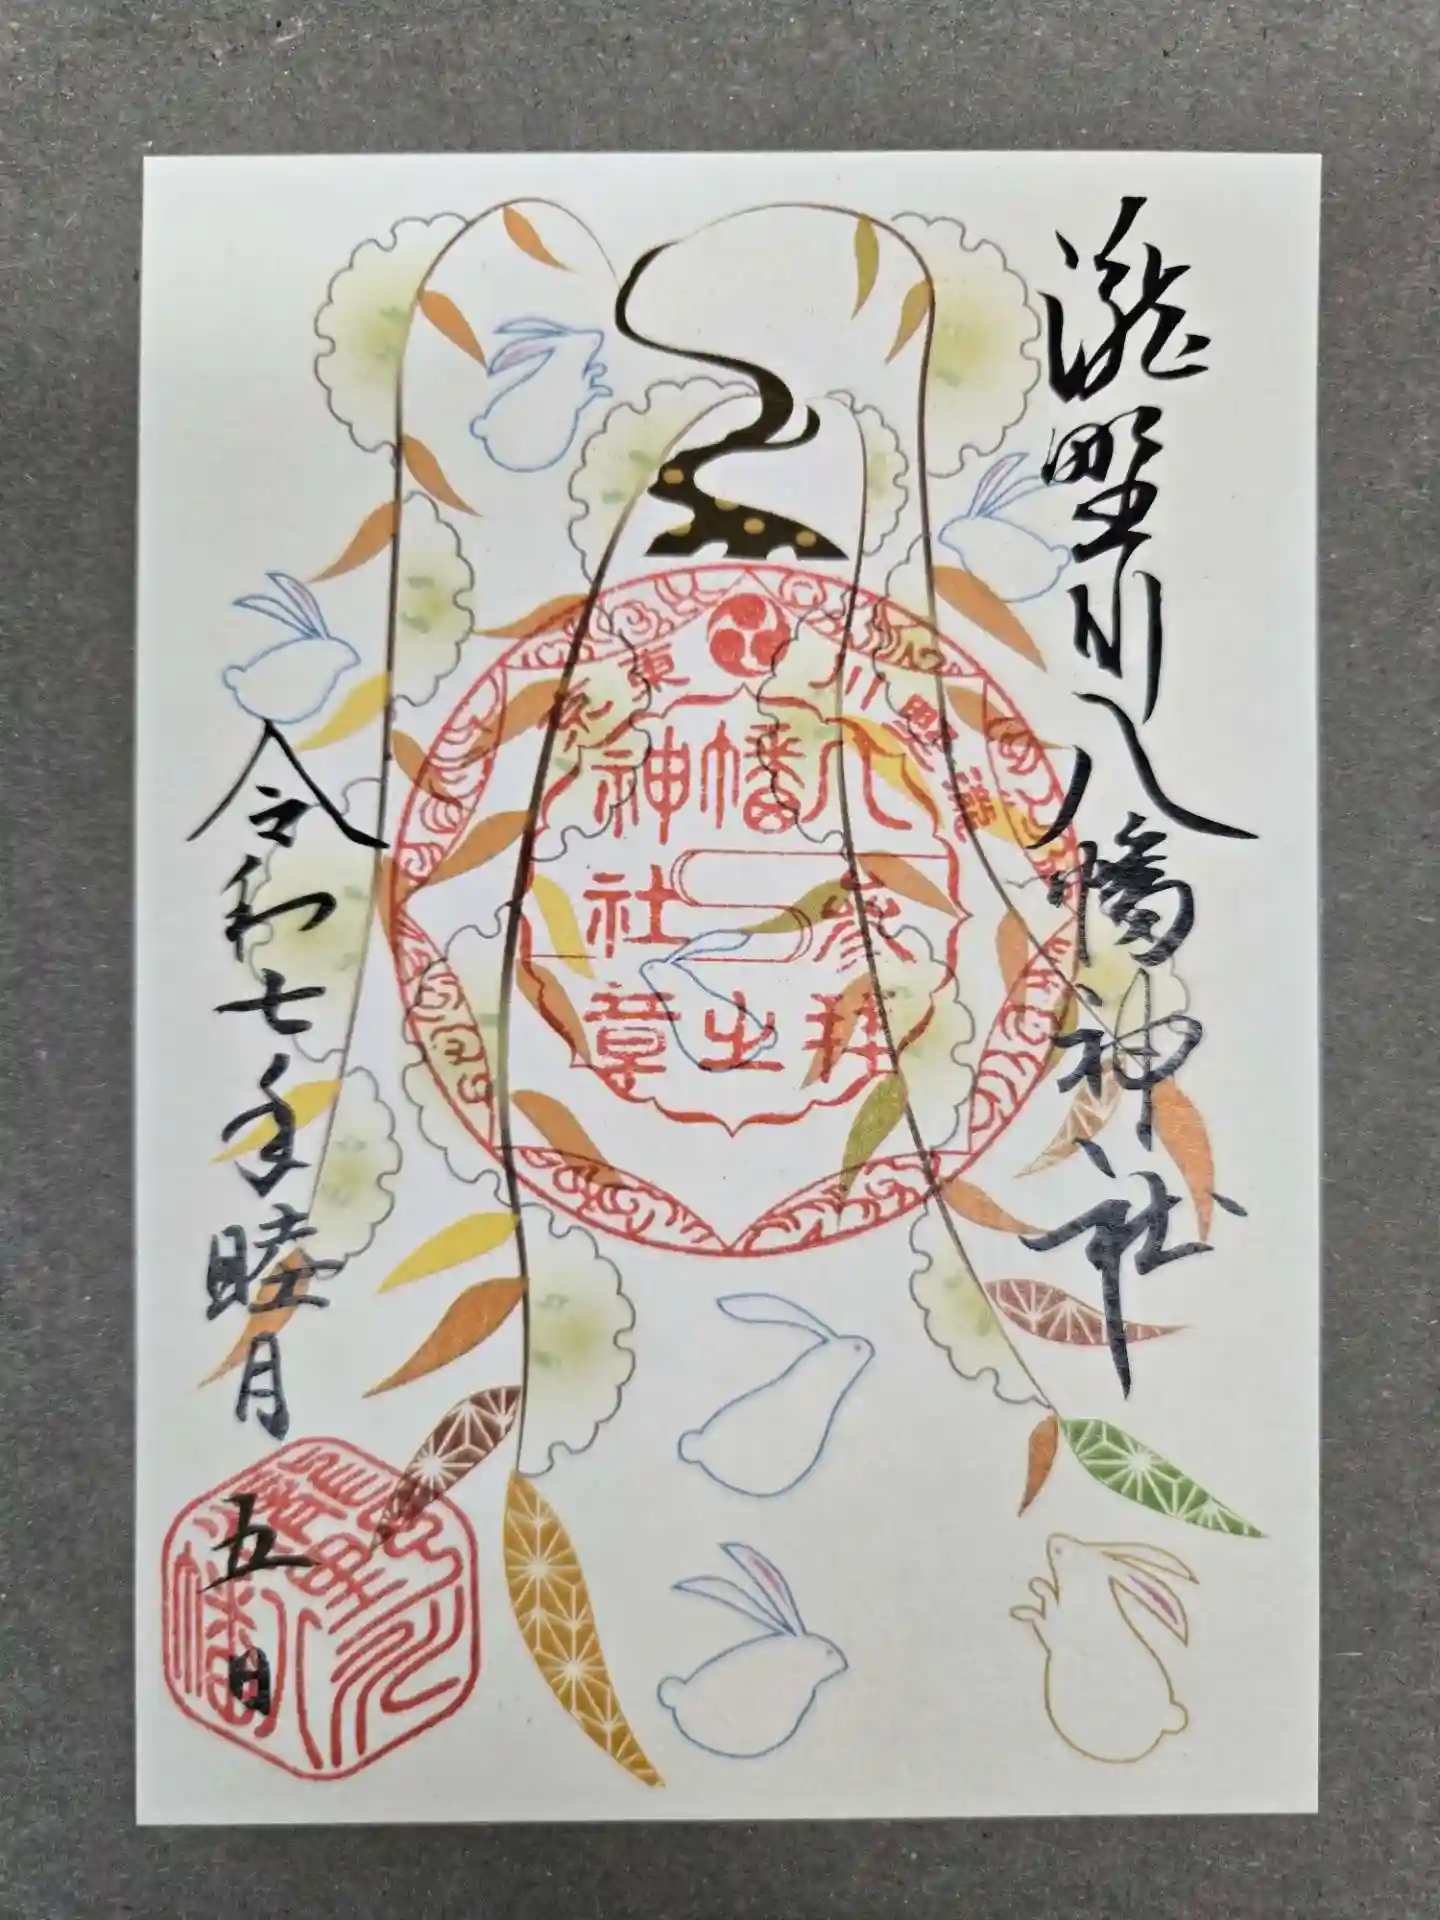 瀧野川八幡神社
東京
瀧野川
八幡神社
参拝之章
令和七年睦月
五日